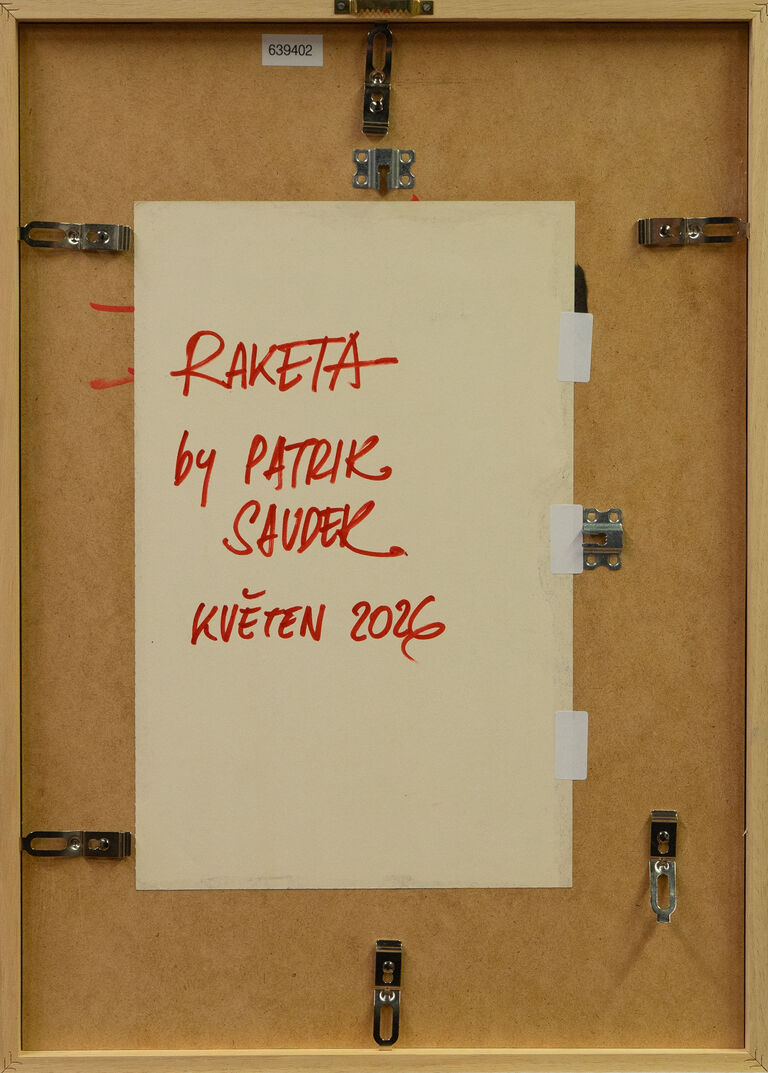 639402
RAKETA
by PATRIK
SAUDEK
KVĚTEN 2026